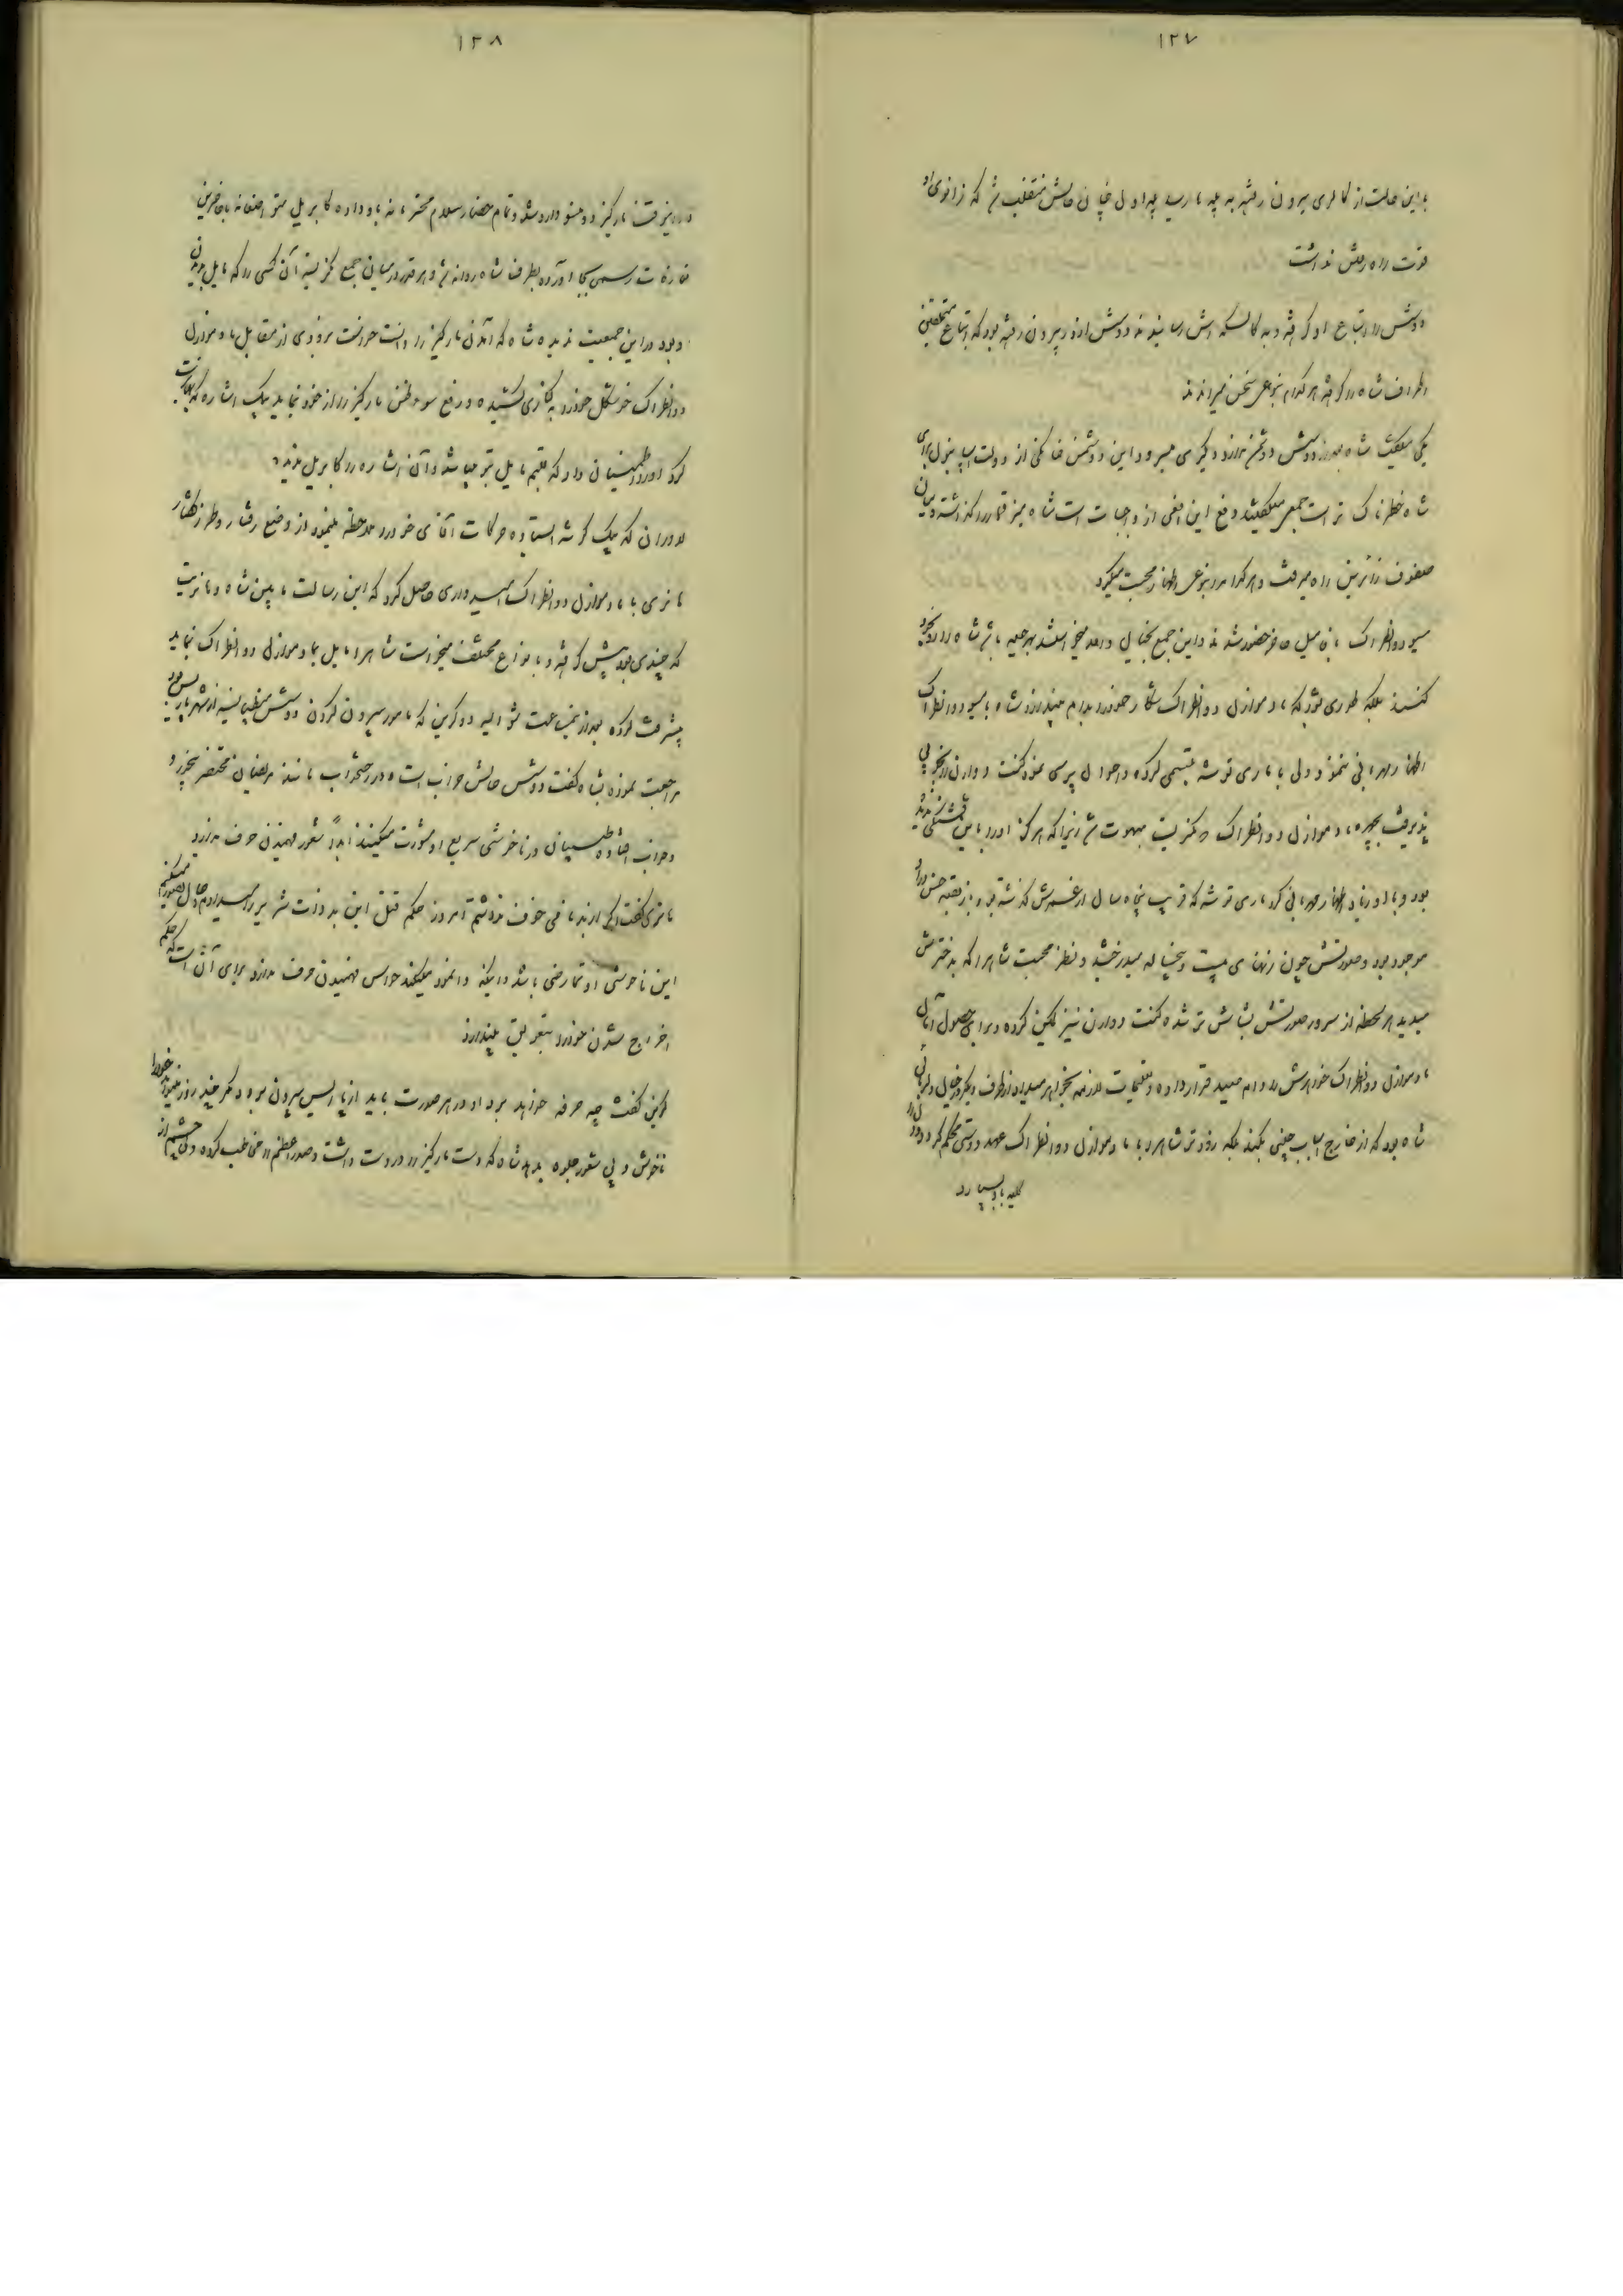 ۱۲۷
باین حالت از کالری بیرون رفته به پله ها رسید پله اول چنان حالش منقلب شد که زانوی او
قوت راه رفتن نداشت
دوشس را اتباع او گرفته و به کالسکه اش رسانیدند دوشس از در بیرون رفته بود که اجتماع متملقین
اطراف شاه را گرفته هر کدام بنوعی سخن میراندند
یکی میگفت شاه بعد از دوشس دشمن ندارد دیگری میسرود این دشمن خانگی از دولت اسپانیول برای
شاه خطرناک تر است جمعی میگفتند دفع این افعی از واجبات است شاه نیز قمار را گذاشته و میان
صفوف زائرین راه میرفت و هر کدام را بنوعی اظهار محبت میکرد
مسیو دوانطراک با فامیل حاضر حضور شدند و این جمع بخیال و عمد میخواستند بهر حیله باشد شاه را
کنند بلکه طوری شود که مادموازل دوانطراک شکار خود را بدام بیندازد شاه با مسیو دوانطراک
اظهار مهربانی ننمود ولی با ماری توشه تبسمی کرده و احوال پرسی نمود کنت دوارن را بخوبی
پذیرفت بچهره مادموازل دوانطراک نگریست مبهوت شد زیرا که هرگز او را باین قشنگی ندیده
بود و با او زیاد اظهار مهربانی کرد ماری توشه که قریب پنجاه سال از عمرش گذشته بود باز بقیه حسن در او
موجود بود و صورتش چون زنهای بیست و پنج ساله میدرخشید و نظر محبت شاه را که بدخترش
میدید هر لحظه از سرور صورتش بشاش تر شده کنت دوارن نیز تمکین کرده و برای حصول آمال
مادموازل دوانطراک خواهرش را دام صید قرار داده و تعلیمات لازمه بخواهر میداد از طرف دیگر در خیال
شاه بود که از خارج اسباب چینی بکند بلکه زودتر شاه را با مادموازل دوانطراک عهد دوستی محکم کرده و دل را
کلیه باو بسپارد
۱۲۸
در این وقت مارکیز دوورنو وارد شد و تمام حضار سلام محترمانه باو داده کابریل متواضعانه باین طریق
تعارفات رسمی بجا آورده بطرف شاه روانه شد و هر قدر در میان جمع نگریسته آن کسی را که مایل بدیدن
او بود در این جمعیت ندیده شاه که آمدن مارکیز را دانست خواست بزودی از مقابل مادموازل
دوانطراک خوشگل خود را بکناری کشیده و رفع سوءظن مارکیز را از خود نماید بیک اشاره که
کرد او را اطمینان داد که قلبم مایل بتو میباشد و آن اشاره را کابریل ندید
لاوارن که بیک گوشه ایستاده حرکات آقای خود را ملاحظه مینمود از وضع رفتار و طرز گفتار
هانری با مادموازل دوانطراک امیدواری حاصل کرد که این رسالت مابین شاه
که چندی بود پیش گرفته و بانواع مختلف میخواست شاه را مایل بمادموازل دوانطراک نماید
پیشرفت کرده بعد از نیم ساعت شوالیه دوکرین که مامور بیرون کردن دوشس منطپنسیه از شهر پاریس بود
مراجعت نموده بشاه گفت دوشس حالش خراب است و در رختخواب مانند مریضان محتضر
و خواب افتاده طبیبان در ناخوشی سریع او مشورت میکنند ابداً شعور فهمیدن حرف ندارد
هانری گفت اگر از بدنامی خوف نداشتم امروز حکم قتل این بدذات شریر را میدادم
این ناخوشی او تمارضی باشد و اینکه وانمود میکند حواس فهمیدن حرف ندارد برای آنست که حکم
اخراج شدن خود را بتعویق بیندازد
کرین گفت چه صرفه خواهد برد او در هر صورت باید از پاریس بیرون برود دیگر چند روز
ناخوش و بی شعور جلوه بدهد شاه که دست مارکیز را در دست داشت و صدر اعظم را مخاطب کرده و